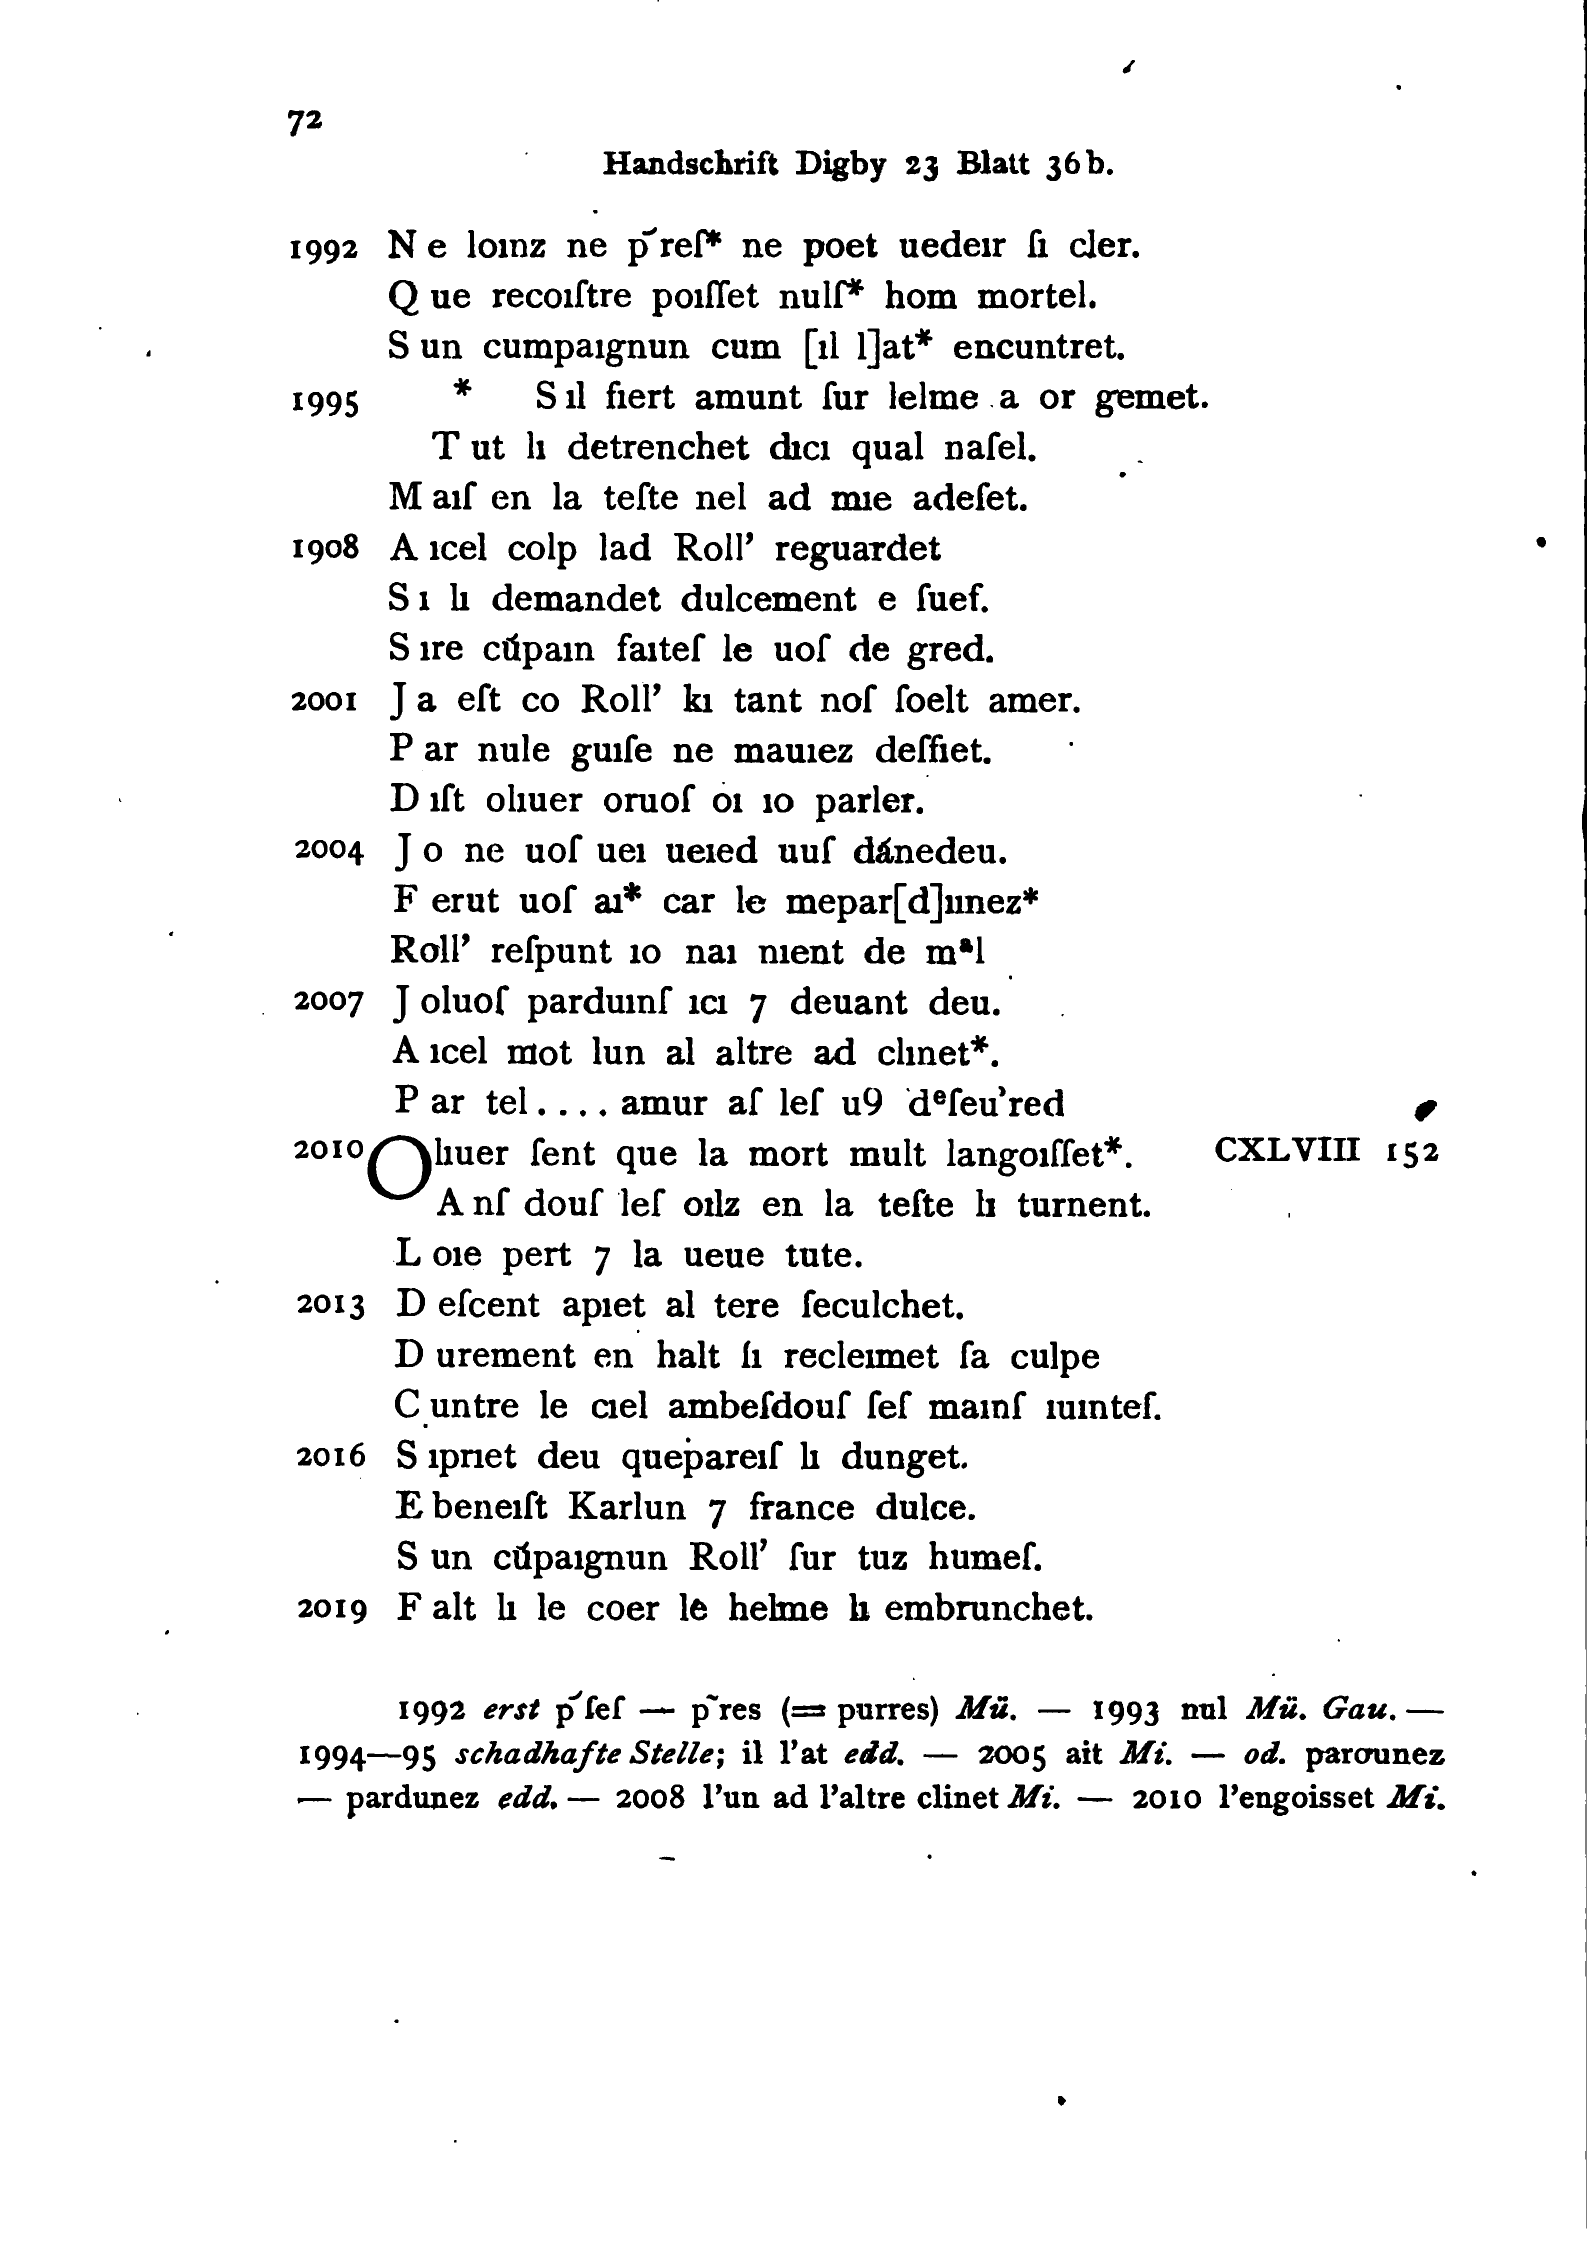 72
Handschrift Digby 23 Blatt 36b.
1992 N e loınz ne pᷓreſ* ne poet uedeır ſı cler.
Q ue recoıſtre poıſſet nulſ* hom mortel.
S un cumpaıgnun cum [ıl l]at* encuntret.
1995 * S ıl fıert amunt ſur lelme a or gemet.
T ut lı detrenchet dıcı qual naſel.
M aıſ en la teſte nel ad mıe adeſet.
1908 A ıcel colp lad Roll’ reguardet
S ı lı demandet dulcement e ſuef.
S ıre cūpaın faıteſ le uoſ de gred.
2001 J a eſt co Roll’ kı tant noſ ſoelt amer.
P ar nule guıſe ne mauıez deſfıet.
D ıſt olıuer oruoſ oı ıo parler.
2004 J o ne uoſ ueı ueıed uuſ dānedeu.
F erut uoſ aı* car le mepar[d]ıınez*
Roll’ reſpunt ıo naı nıent de mᵃl
2007 J oluoſ parduınſ ıcı 7 deuant deu.
A ıcel mot lun al altre ad clınet*.
P ar tel.... amur aſ leſ u9 dᵉſeu’red
2010 Olıuer ſent que la mort mult langoıſſet*. CXLVIII 152
A nſ douſ leſ oılz en la teſte lı turnent.
L oıe pert 7 la ueue tute.
2013 D eſcent apıet al tere ſeculchet.
D urement en halt ſı recleımet ſa culpe
C untre le cıel ambeſdouſ ſeſ maınſ ıuınteſ.
2016 S ıpriet deu quepareıſ lı dunget.
E beneıſt Karlun 7 france dulce.
S un cūpaıgnun Roll’ ſur tuz humeſ.
2019 F alt lı le coer le helme lı embrunchet.
1992 erst pᷓſeſ — p˜res (= purres) Mü. — 1993 nul Mü. Gau. —
1994—95 schadhafte Stelle; il l’at edd. — 2005 ait Mi. — od. parounez
— pardunez edd. — 2008 l’un ad l’altre clinet Mi. — 2010 l’engoisset Mi.